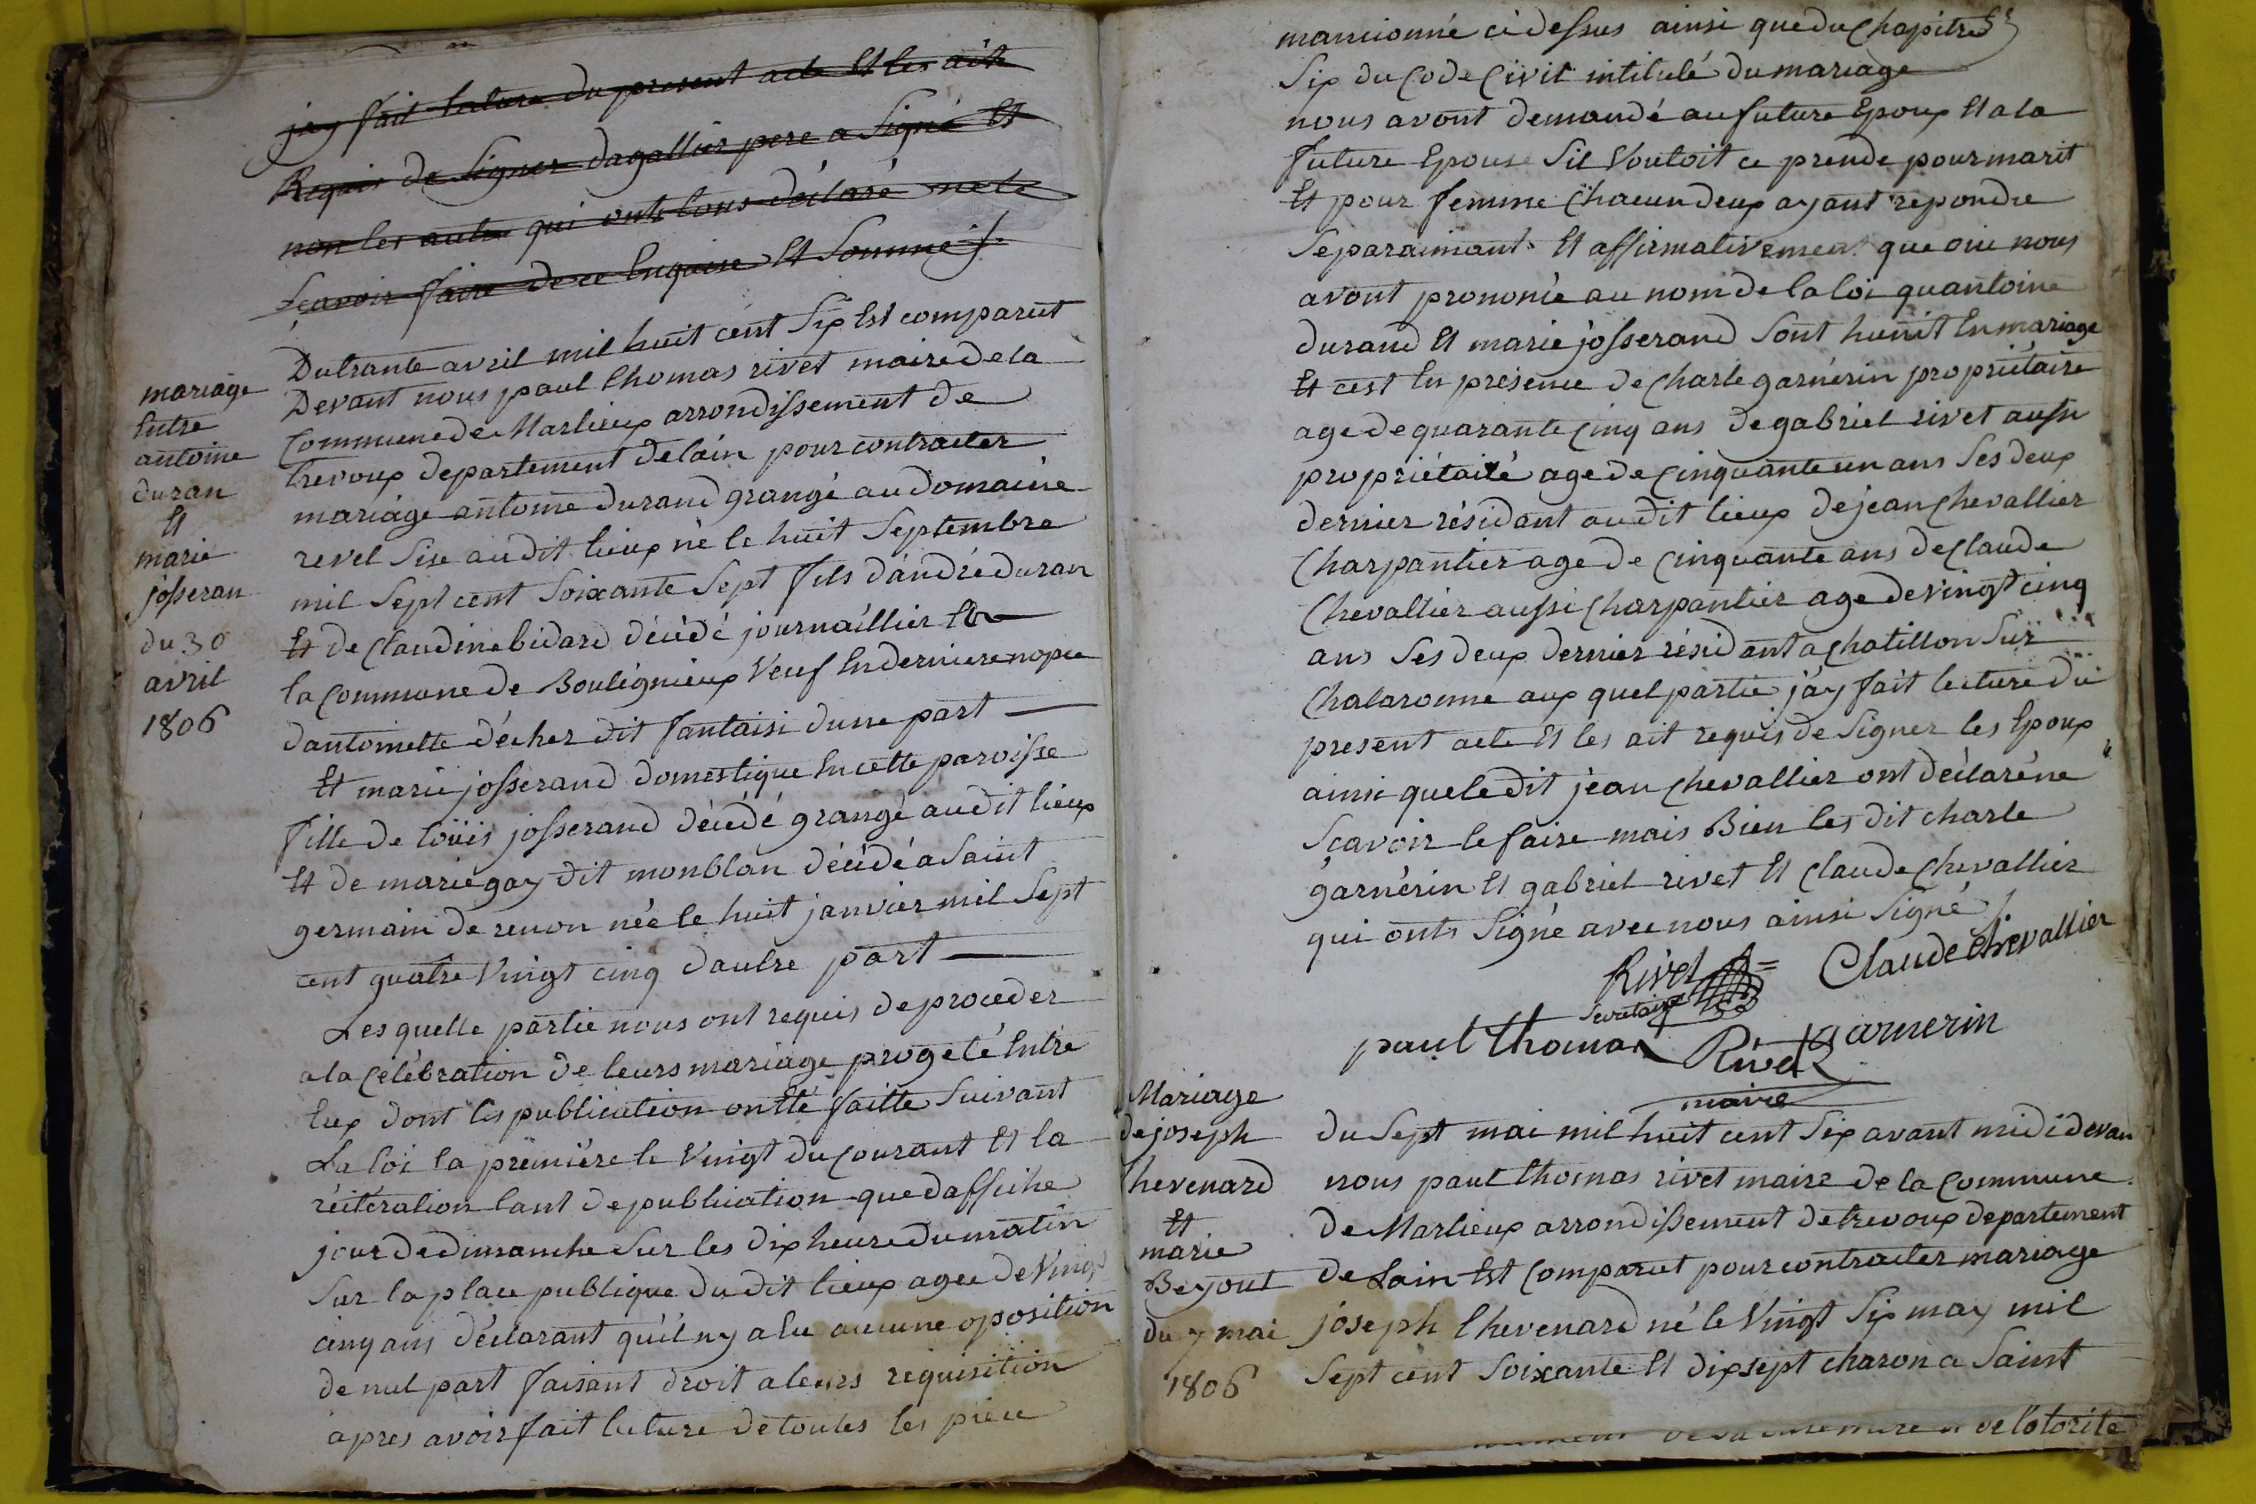 jay fait lecture du present acte Et les ait
Requis de signer dagallier pere a Signé Et
non les autre qui onts tous déclaré ne le
sçavoir faire de ce Enquise Et Sommé ./.
mariage
Entre
antoine
duran
Et
marie
josseran
du 30
avril
1806
Dutrante avril mil huit cent Six Est comparut
Devant nous paul thomas rivet maire de la
Commune de Marlieux arrondissement de
trevoux departement de lain pour contracter
mariage antoine durand grangé au domaine
revel Sise audit lieux né le huit Septembre
mil Sept cent Soixante Sept fils d'andré duran
Et de Claudine bidard décédé journaillier En
la Commune de Bouligneux Veuf En derniere nopce
dantoinette décher dit fantaisi dune part
Et marie josserand domestique En cette paroisse
fille de loüis josserand décédé grangé audit lieux
Et de marie gay dit monblan décédé a Saint
germain de renon née le huit janvier mil Sept
cent quatre Vingt cinq d'autre part
Lesquelle partie nous ont requis de proceder
a la Celébration de leurs mariage progeté Entre
Eux dont les publication ont Eté faitte Suivant
La loi la premiére le Vingt du Courant Et la
réitération tant de publication que d'affiche
jour de dimanche Sur les dix heure du matin
Sur la place publique du dit lieux agée de Vingt
cinq ans déclarant qu'il n'y a Eu aucune oposition
de nul part faisant droit a leurs requisition
apres avoir fait lecture de toutes les piéce
mancionné ci dessus ainsi que du Chapitre
Six du Code Civil intitulé du mariage
nous avont demandé au future Epoux Et a la
future Epouse Sil Vouloit ce prende pour marit
Et pour femme Chacun deux ayant repondre
Separaimant Et affirmativement que oui nous
avont prononcé au nom de la loi quantoine
durand Et marie josserand Sont hunit En mariage
Et cest En présence de Charle garnérin propriétaire
age de quarante Cinq ans de gabriel rivet aussi
propriétaité age de Cinquante un ans Ses deux
dernier résidant audit lieux de jean Chevallier
Charpantier age de Cinquante ans de Claude
Chevallier aussi Charpantier age de vingt cinq
ans Ses deux dernier résidant a Chatillon Sur
Chalaronne aux quel partie j'ay fait lecture du
present acte Et les ait requis de Signer les Epoux
ainsi que le dit jean Chevallier ont déclaré ne
Sçavoir le faire mais Bien les dit charle
garnérin Et gabriel rivet Et Claude Chevallier
qui onts Signé avec nous ainsi Signé ./.
Rivet
Secretaire
Claude chevallier
paul thomas
Rivet
garnerin
maire
Mariage
de joseph
thevenard
Et
marie
Beyout
du 7 mai
1806
du Sept mai mil huit cent Six avant midi devan
nous paul thomas rivet maire de la Commune
de Marlieux arrondissement de trevoux departement
de Lain Est Comparut pour contracter mariage
joseph thevenard né le Vingt Six may mil
Sept cent Soixante Et dix sept charon a Saint